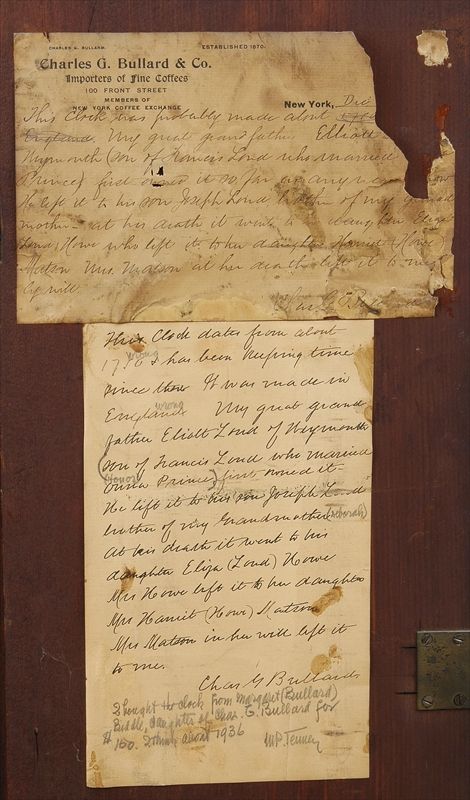 CHARLES G. BULLARD.
ESTABLISHED 1870.
Charles G. Bullard & Co.
Importers of Fine Coffees
100 FRONT STREET
MEMBERS OF
NEW YORK COFFEE EXCHANGE
New York, Dec
This Clock was probably made about
England. My great grand father Elliott
Weymouth (son of Francis Loud who married
Prince) first owned it so far as any
He left it to his son Joseph Loud brother of my grand
mother - at his death it went to daughter Eliza
Loud Howe who left it to her daughter Harriet (Howe)
Matson Mrs. Matson at her death left it to me
by will.
Chas G Bullard
This Clock dates from about
wrong
1750 & has been keeping time
since then It was made in
wrong
England. My great grand
father Eliott Loud of Weymouth
(son of Francis Loud who married
(Honor)
Onner Prince) first owned it
He left it to his son Joseph Loud
brother of my Grandmother (Deborah)
At his death it went to his
daughter Eliza (Loud) Howe
Mrs Howe left it to her daughter
Mrs Harriet (Howe) Matson
Mrs Matson in her will left it
to me.
Chas G Bullard
I bought the clock from Margaret (Bullard)
Biddle, daughter of Chas. G. Bullard for
$150. I think about 1936
M.P. Tenney